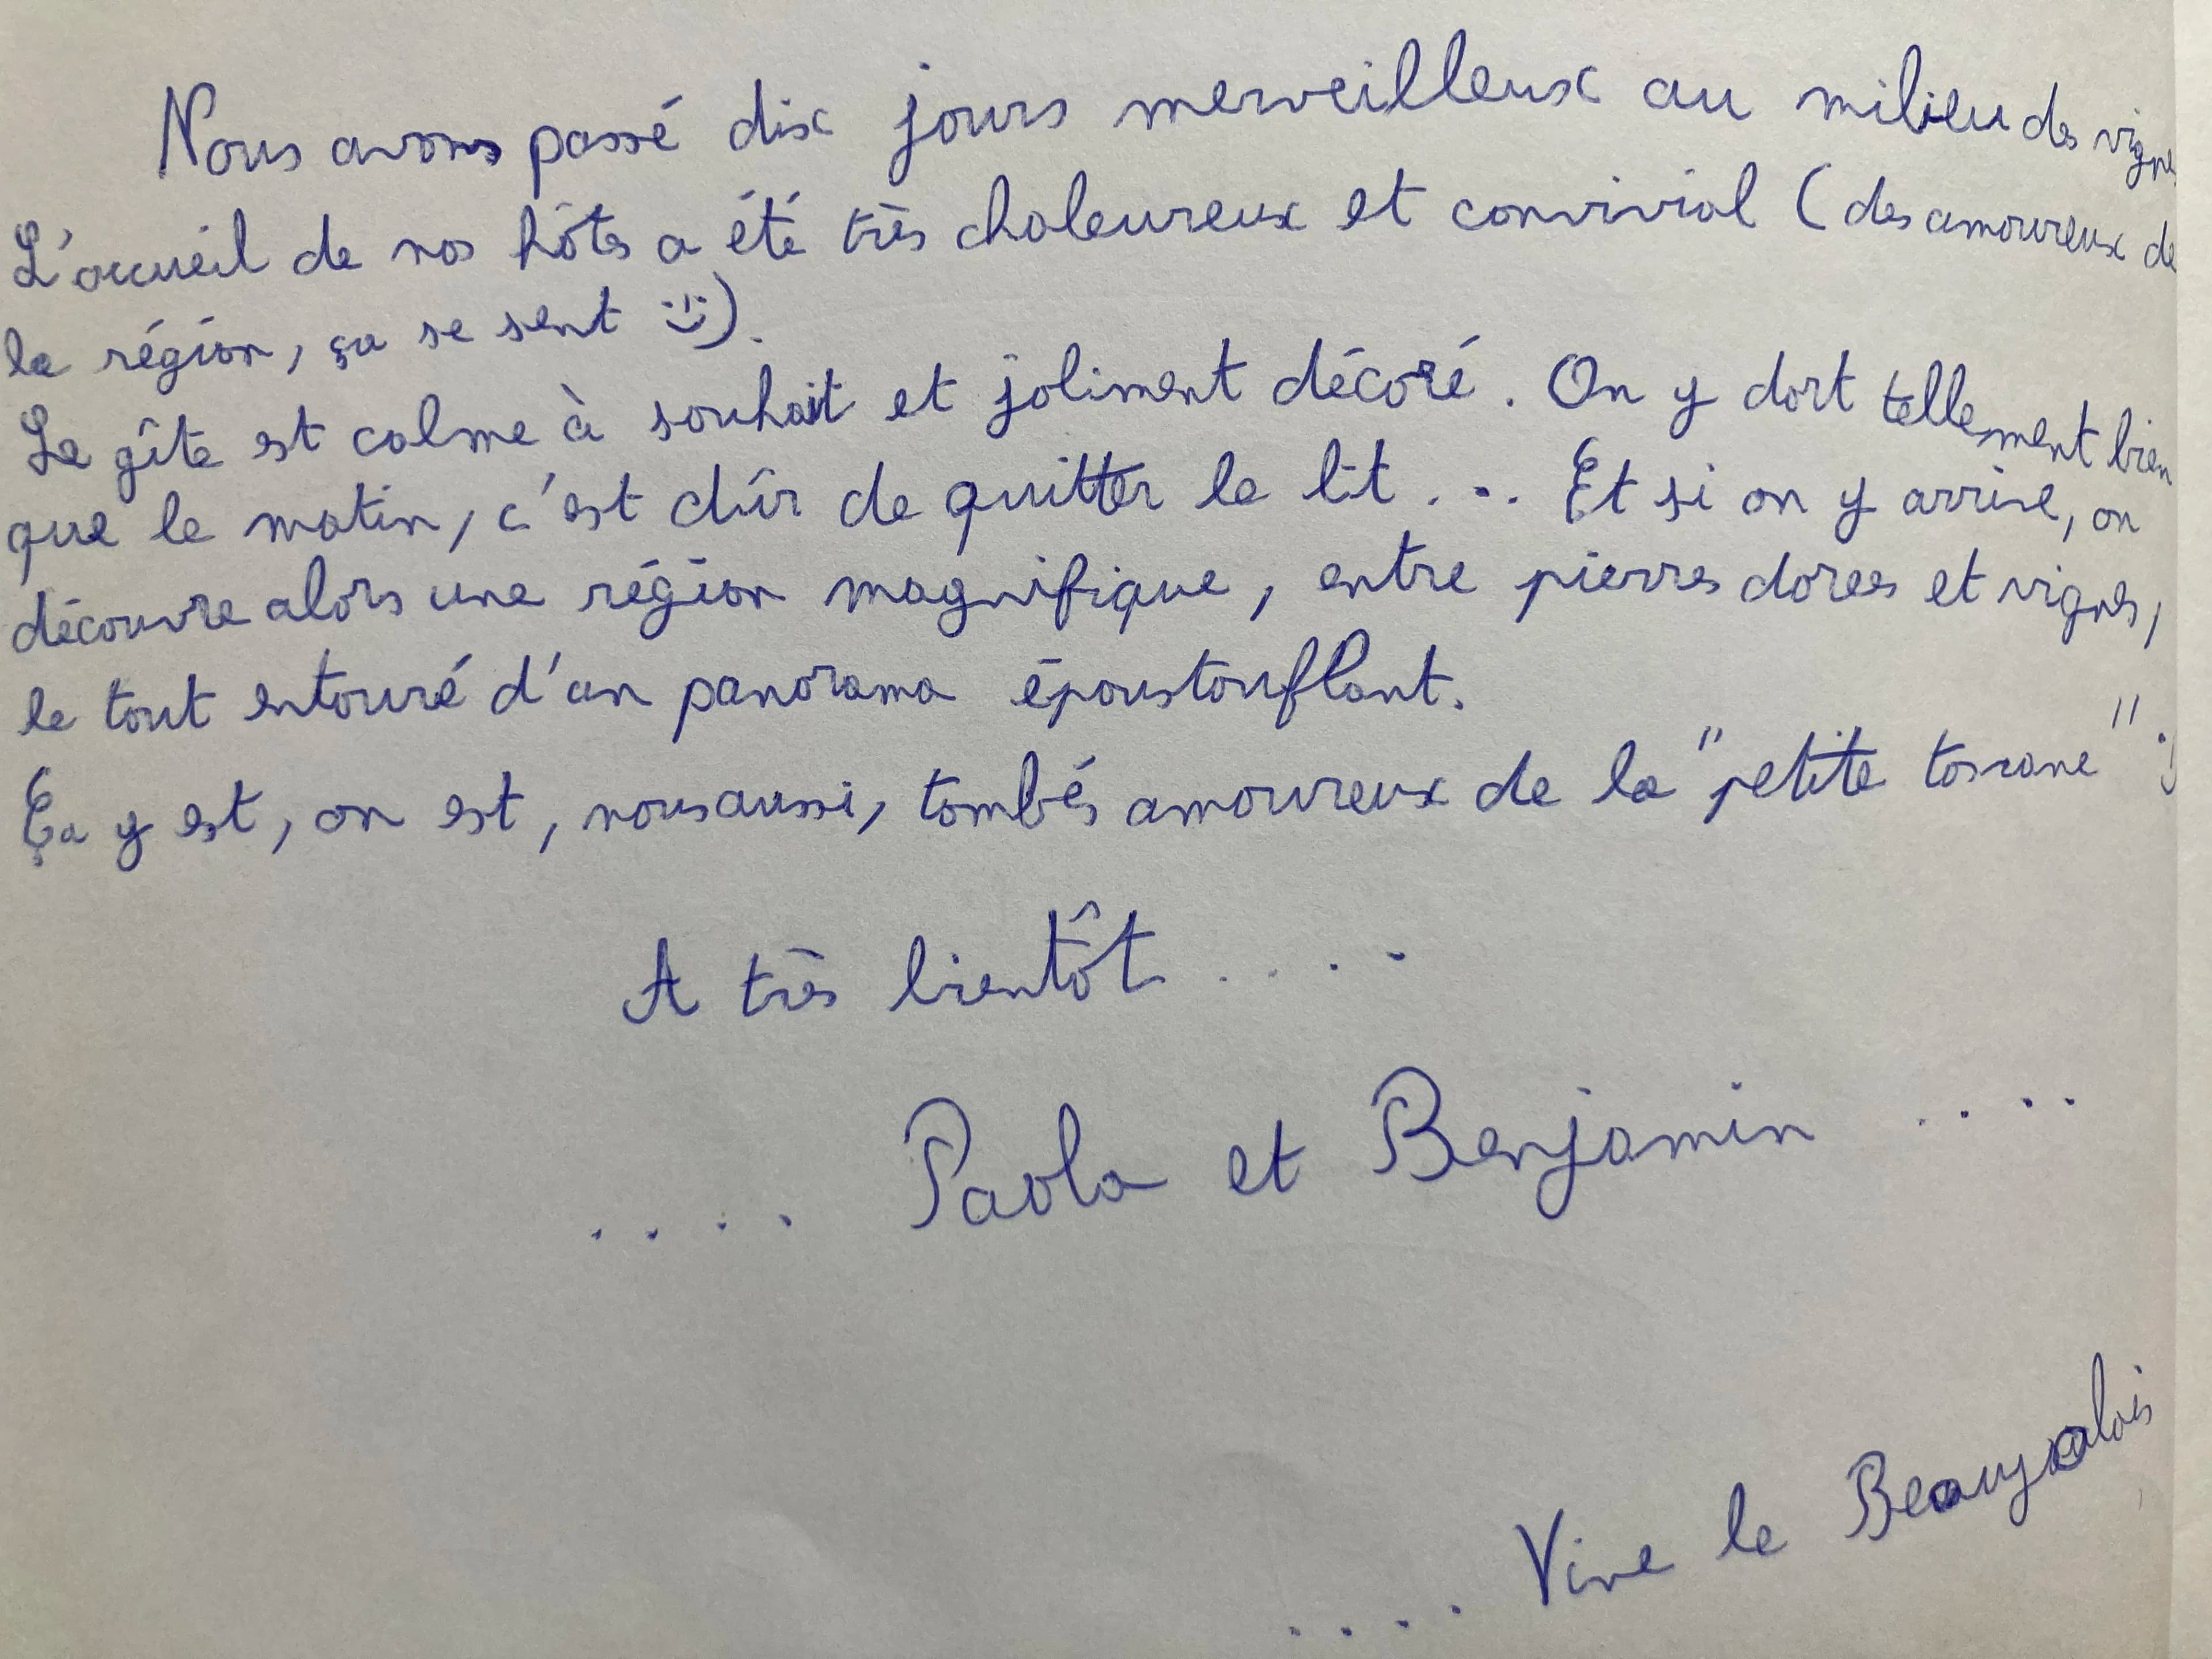 Nous avons passé dix jours merveilleux au milieu des vignes
L'accueil de nos hôtes a été très chaleureux et convivial (des amoureux de
la région, ça se sent :)).
Le gîte est calme à souhait et joliment décoré. On y dort tellement bien
que le matin, c'est dûr de quitter le lit ... Et si on y arrive, on
découvre alors une région magnifique, entre pierres dorées et vignes,
le tout entouré d'un panorama époustouflant.
Ça y est, on est, nous aussi, tombés amoureux de la "petite toscane" !
A très bientôt ....
.... Paola et Benjamin ....
.... Vive le Beaujolais